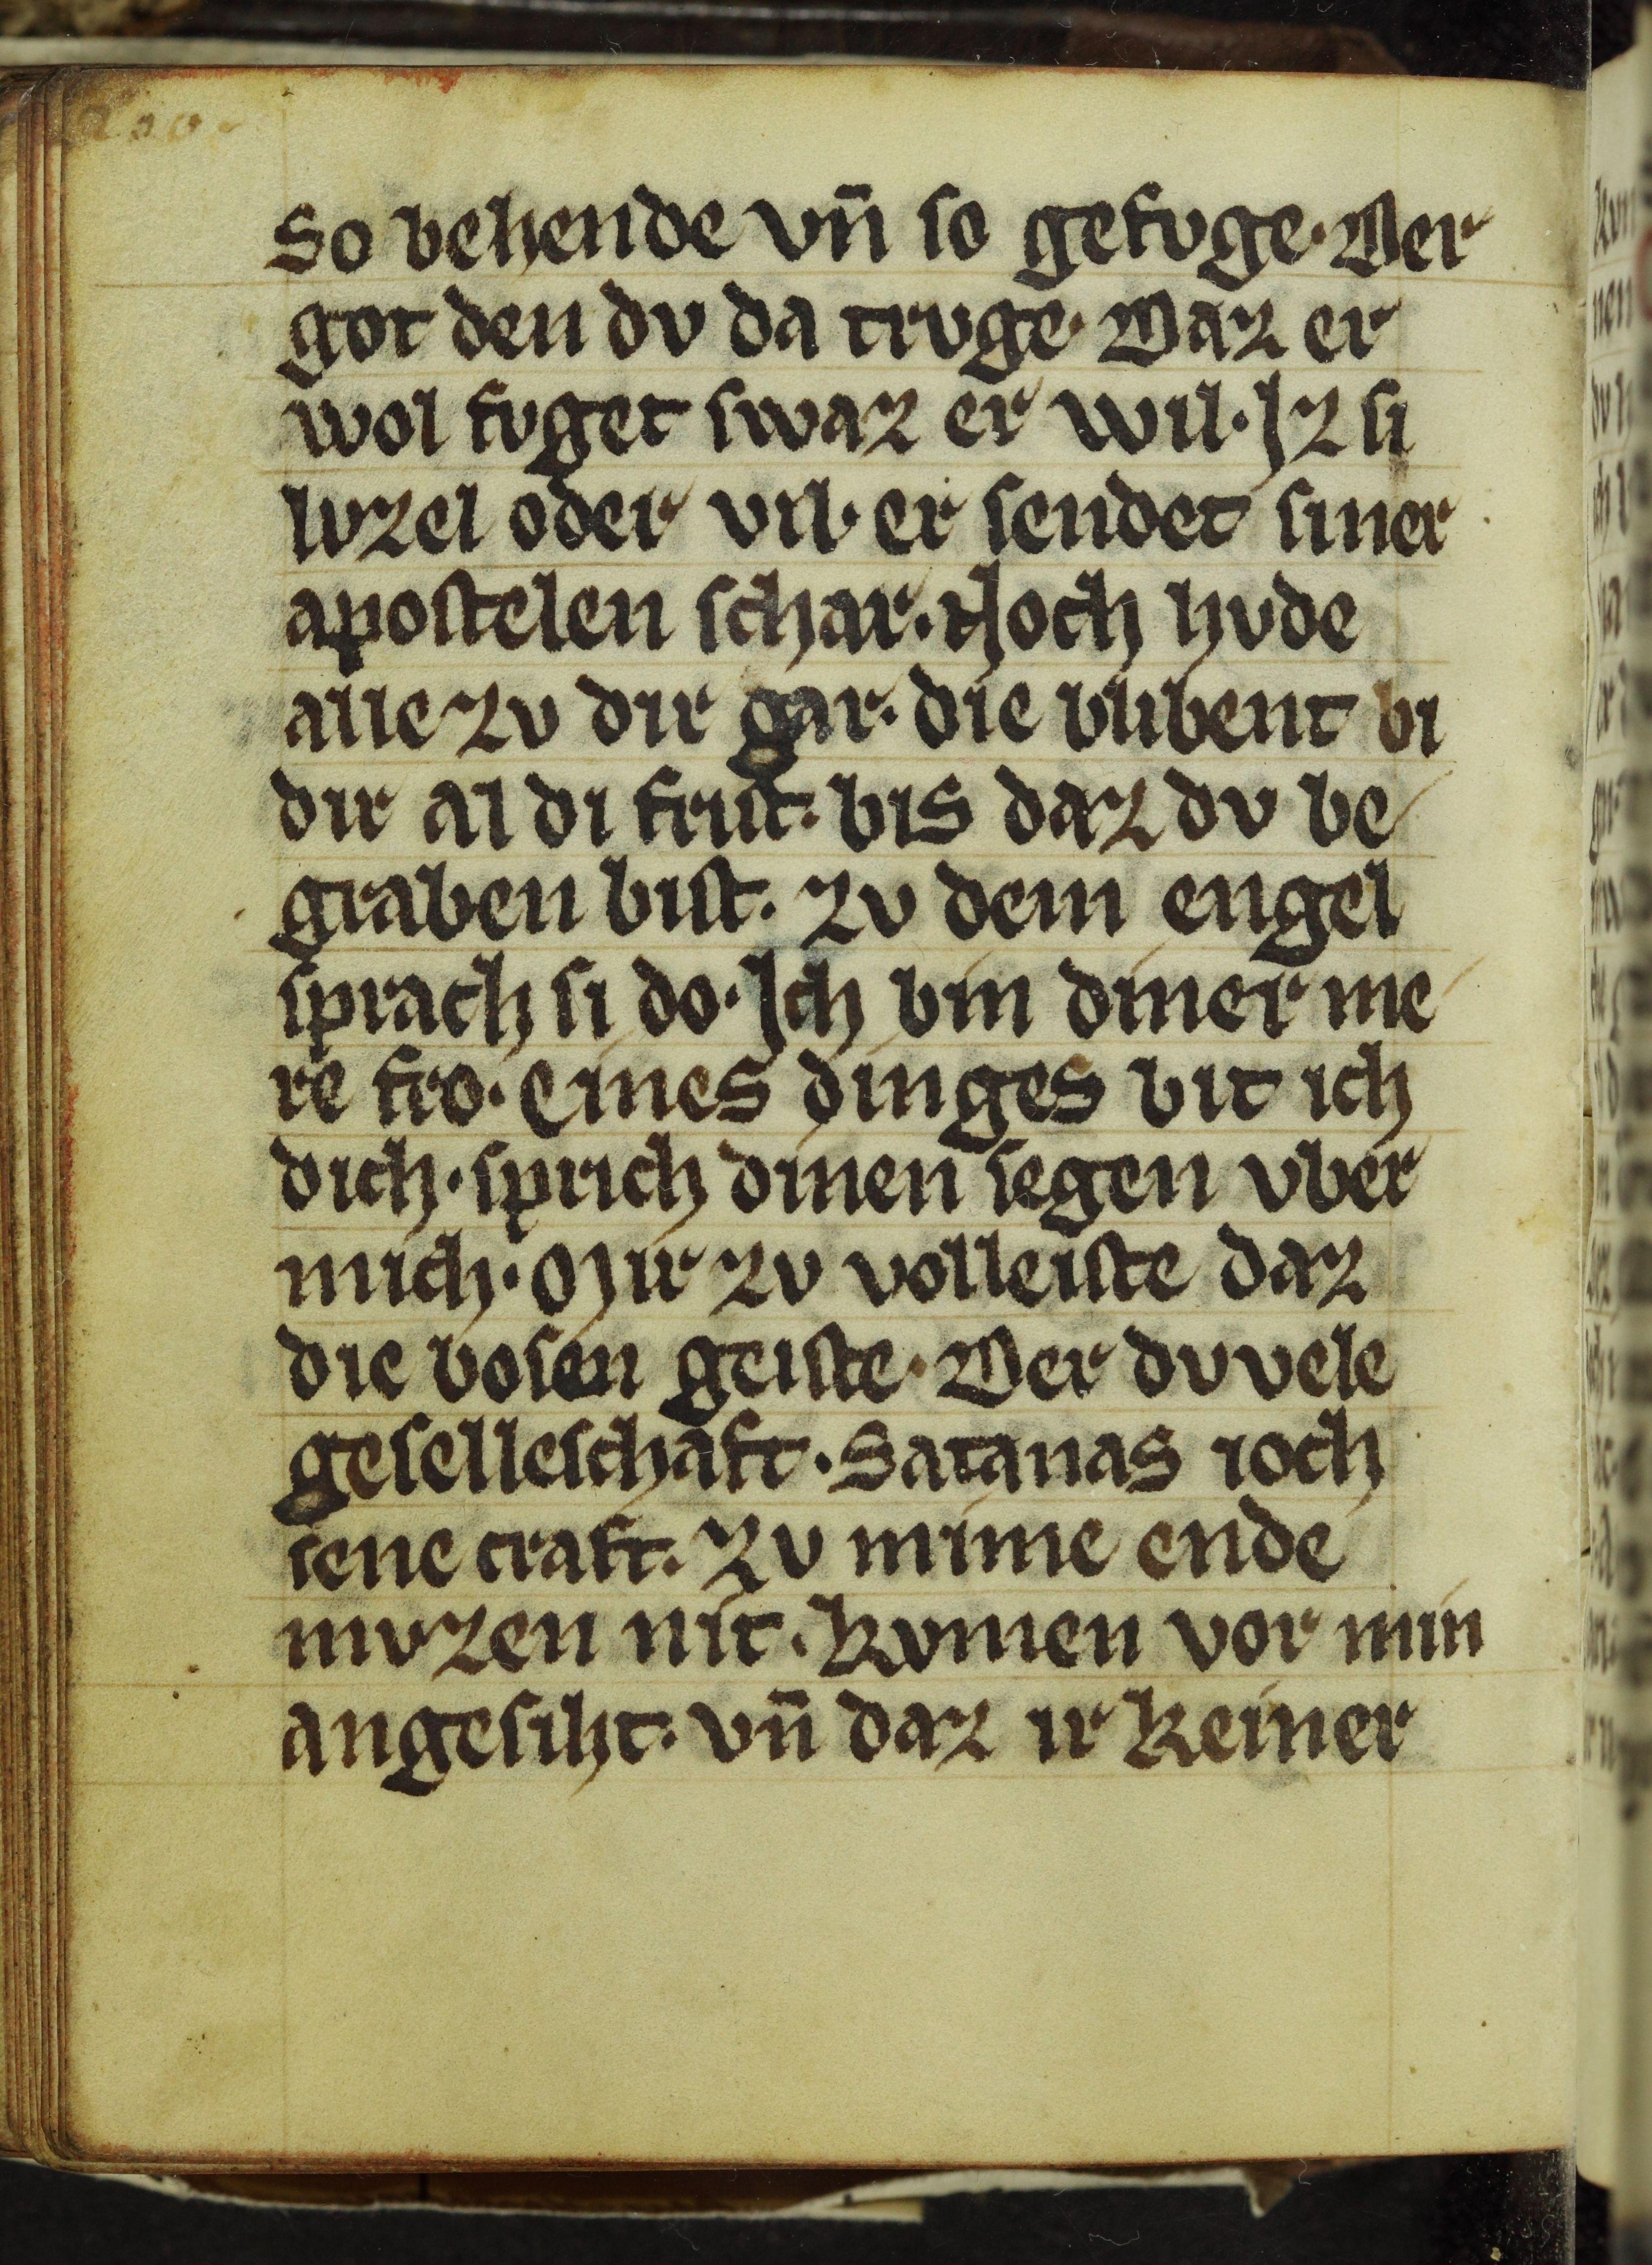 So behende vn̄ so gefvge. Der
got den dv da trvge. Daz er
wol fvget swaz er wil. Jz si
lvzel oder vil. er sendet siner
apostelen schar. Noch hvde
alle zv dir gar. die blibent bi
dir al di frist. bis daz dv be
graben bist. zv dem engel
sprach si do. Jch bin diner me
re fro. Eines dinges bit ich
dich. sprich dinen segen vber
mich. Mir zv volleiste daz
die bosen geiste. Der dvvele
geselleschaft. Satanas ioch
sene craft. Zv mime ende
mvzen nit. Kvmen vor min
angesiht. vn̄ daz ir keiner